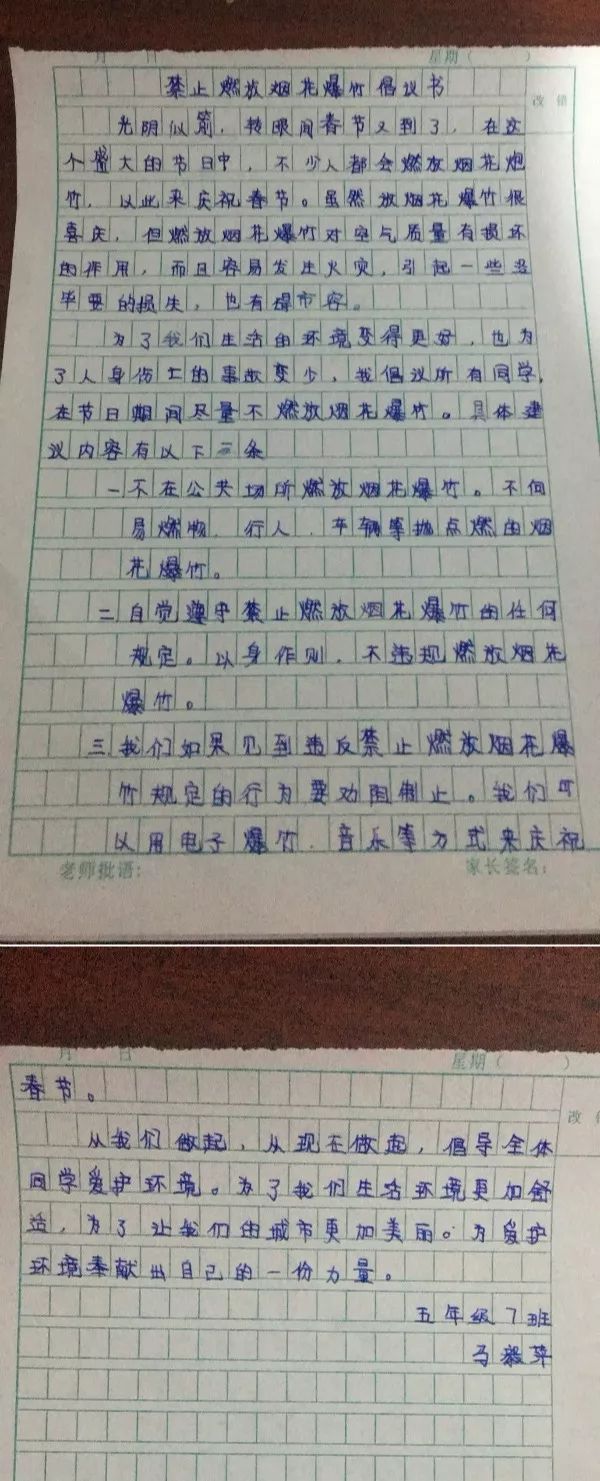 月 日 星期（ ）
改错
禁止燃放烟花爆竹倡议书
光阴似箭，转眼间春节又到了，在这
个盛大的节日中，不少人都会燃放烟花炮
竹，以此来庆祝春节。虽然放烟花爆竹很
喜庆，但燃放烟花爆竹对空气质量有损坏
的作用，而且容易发生火灾，引起一些
毕要的损失，也有碍市容。
为了我们生活的环境变得更好，也为
了人身伤亡的事故变少，我倡议所有同学，
在节日期间尽量不燃放烟花爆竹。具体建
议内容有以下三条
一不在公共场所燃放烟花爆竹。不向
易燃物、行人、车辆等抛点燃的烟
花爆竹。
二自觉遵守禁止燃放烟花爆竹的任何
规定。以身作则，不违规燃放烟花
爆竹。
三我们如果见到违反禁止燃放烟花爆
竹规定的行为要劝阻制止。我们可
以用电子爆竹、音乐等方式来庆祝
老师批语： 家长签名：
月 日 星期（ ）
改
春节。
从我们做起，从现在做起，倡导全体
同学爱护环境。为了我们生活环境更加舒
适，为了让我们的城市更加美丽。为爱护
环境奉献出自己的一份力量。
五年级7班
马毅萍